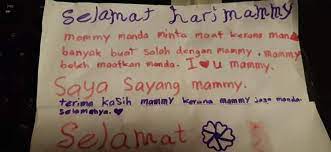 Selamat hari mammy
mammy manda minta maaf kerana manda
banyak buat salah dengan mammy. mammy
boleh maafkan manda. I ♥ u mammy.
Saya Sayang mammy.
terima kasih mammy kerana mammy jaga manda.
Selamanya. ♥
Selamat